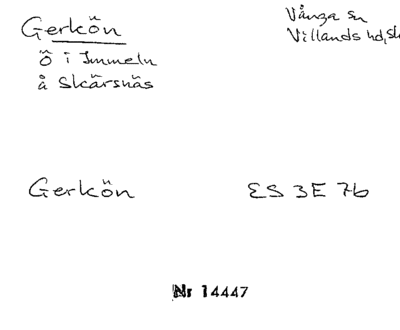 Gerkön
Vånga sn
Villands hd, Sk
ö i Immeln
å Skärsnäs
Gerkön
ES 3E 7b
Nr 14447